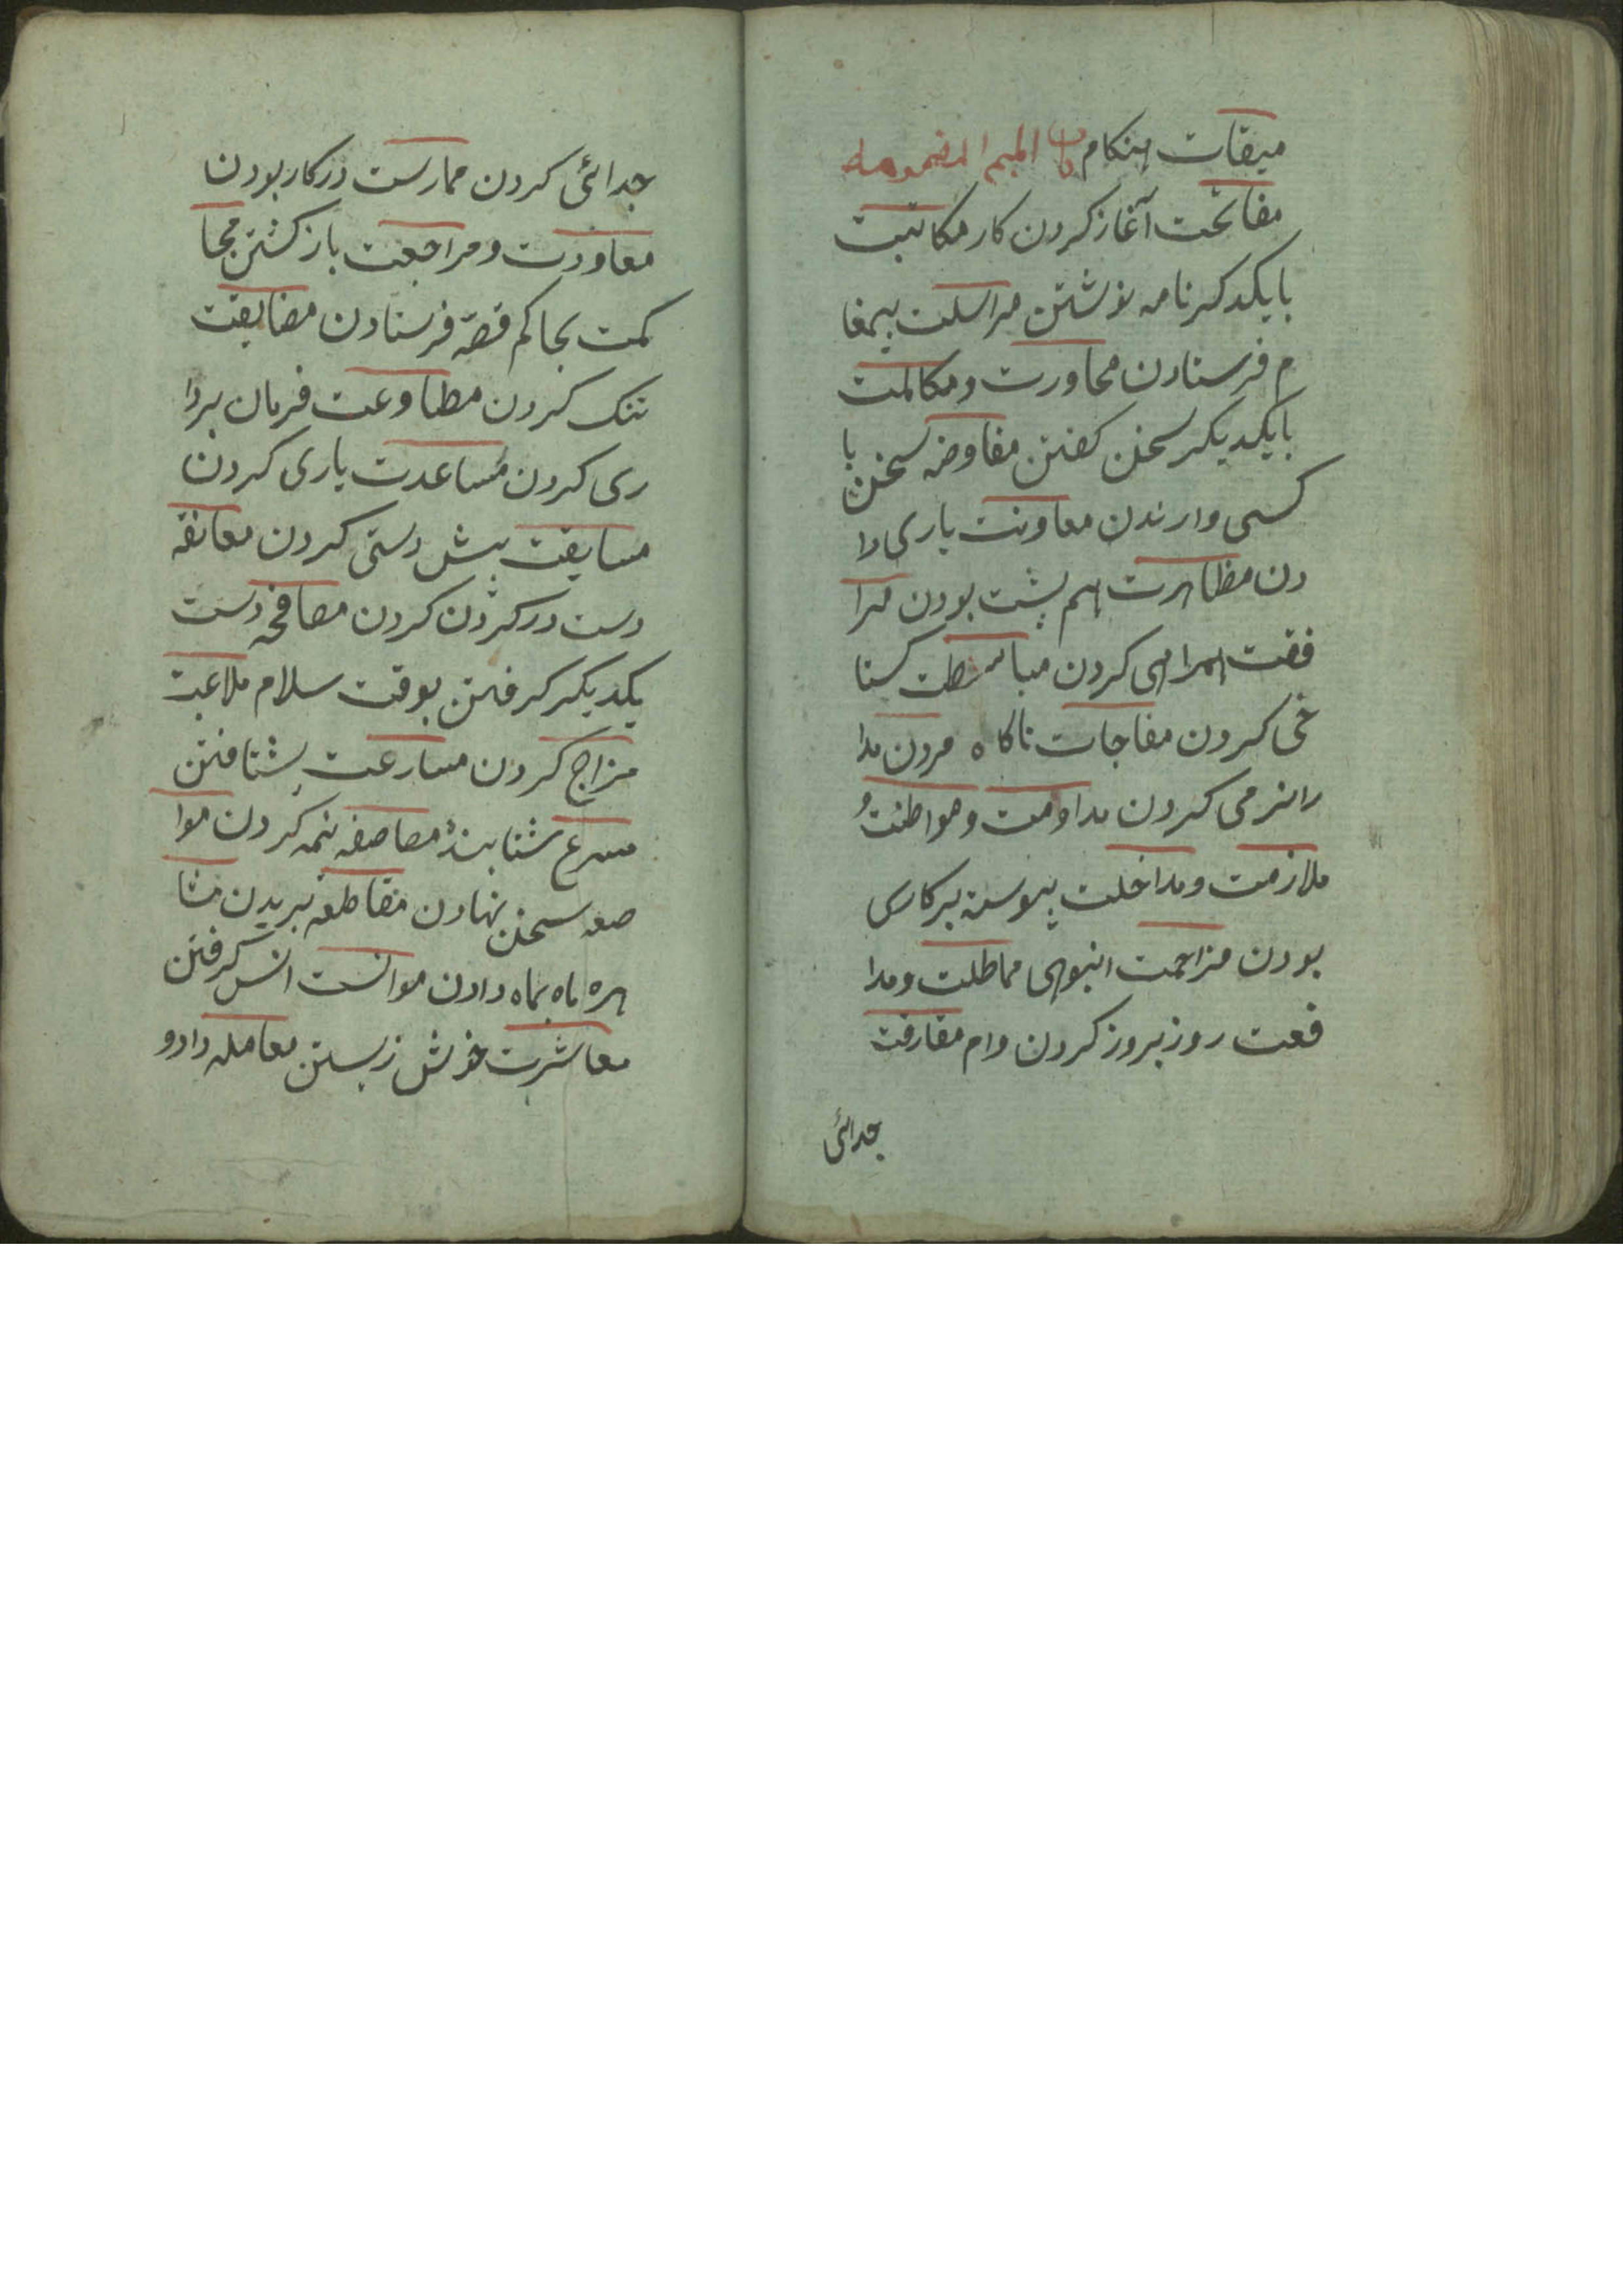 میقات هنکام باب المیم المضمومه
مفاتحت آغاز کردن کار مکاتبت
با یکدکر نامه نوشتن مراسلت پیغا
م فرستادن محاورت و مکالمت
با یکدیکر سخن کفتن مفاوضه سخن با
کسی وارندن معاونت یاری دا
دن مظاهرت هم پشت بودن مرا
فقت همراهی کردن مباسطت کستا
خی کردن مفاجات ناکاه مردن مدا
رانرمی کردن مداومت و مواظبت و
ملازمت و مداخلت پیوسته بر کاری
بودن مزاحمت انبوهی مماطلت و مدا
فعت روز بروز کردن وام مفارقت
جدائی
جدائی کردن ممارست در کار بودن
معاودت و مراجعت باز کشتن محا
کمت بحاکم قصه فرستادن مضایقت
تنک کردن مطاوعت فرمان بردا
ری کردن مساعدت یاری کردن
مسابقت پیش دستی کردن معانقه
دست در کردن کردن مصافحه دست
یکدیکر کرفتن بوقت سلام ملاعبت
مزاح کردن مسارعت بشتافتن
مسرع شتابنده مصاصفه نیمه کردن موا
صعه سخن نهادن مقاطعه ببریدن مشا
هره ماه بماه دادن موانست انس کرفتن
معاشرت خوش زیستن معامله داد و